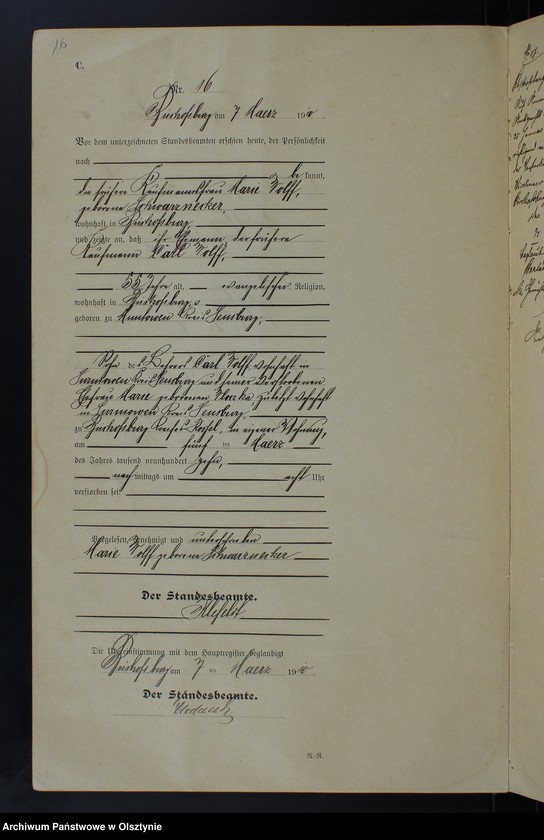 16
C.
Nr. 16
Bischofsburg am 7 Maerz 1910
Vor dem unterzeichneten Standesbeamten erschien heute, der Persönlichkeit
nach
bekannt,
die frühere Kaufmannsfrau Marie Wolff,
geborene Schwarznecker,
wohnhaft in Bischofsburg
und zeigte an, daß ihr Ehemann, der frühere
Kaufmann Carl Wolff,
55 Jahre alt, evangelischer Religion,
wohnhaft in Bischofsburg,
geboren zu Kreis Sensburg,
Sohn des Lehrers Carl Wolff wohnhaft in
Kreis Sensburg und seiner verstorbenen
Ehefrau Marie geborenen zuletzt wohnhaft
in Kreis Sensburg,
zu Bischofsburg Kreises Rössel, in eigener Wohnung,
am fünf ten Maerz
des Jahres tausend neunhundert zehn,
nachmittags um acht Uhr
verstorben sei.
Vorgelesen, genehmigt und unterschrieben
Marie Wolff geborene Schwarznecker
Der Standesbeamte.
Die Übereinstimmung mit dem Hauptregister beglaubigt
Bischofsburg am 7 ten Maerz 1910
Der Standesbeamte.
Archiwum Państwowe w Olsztynie